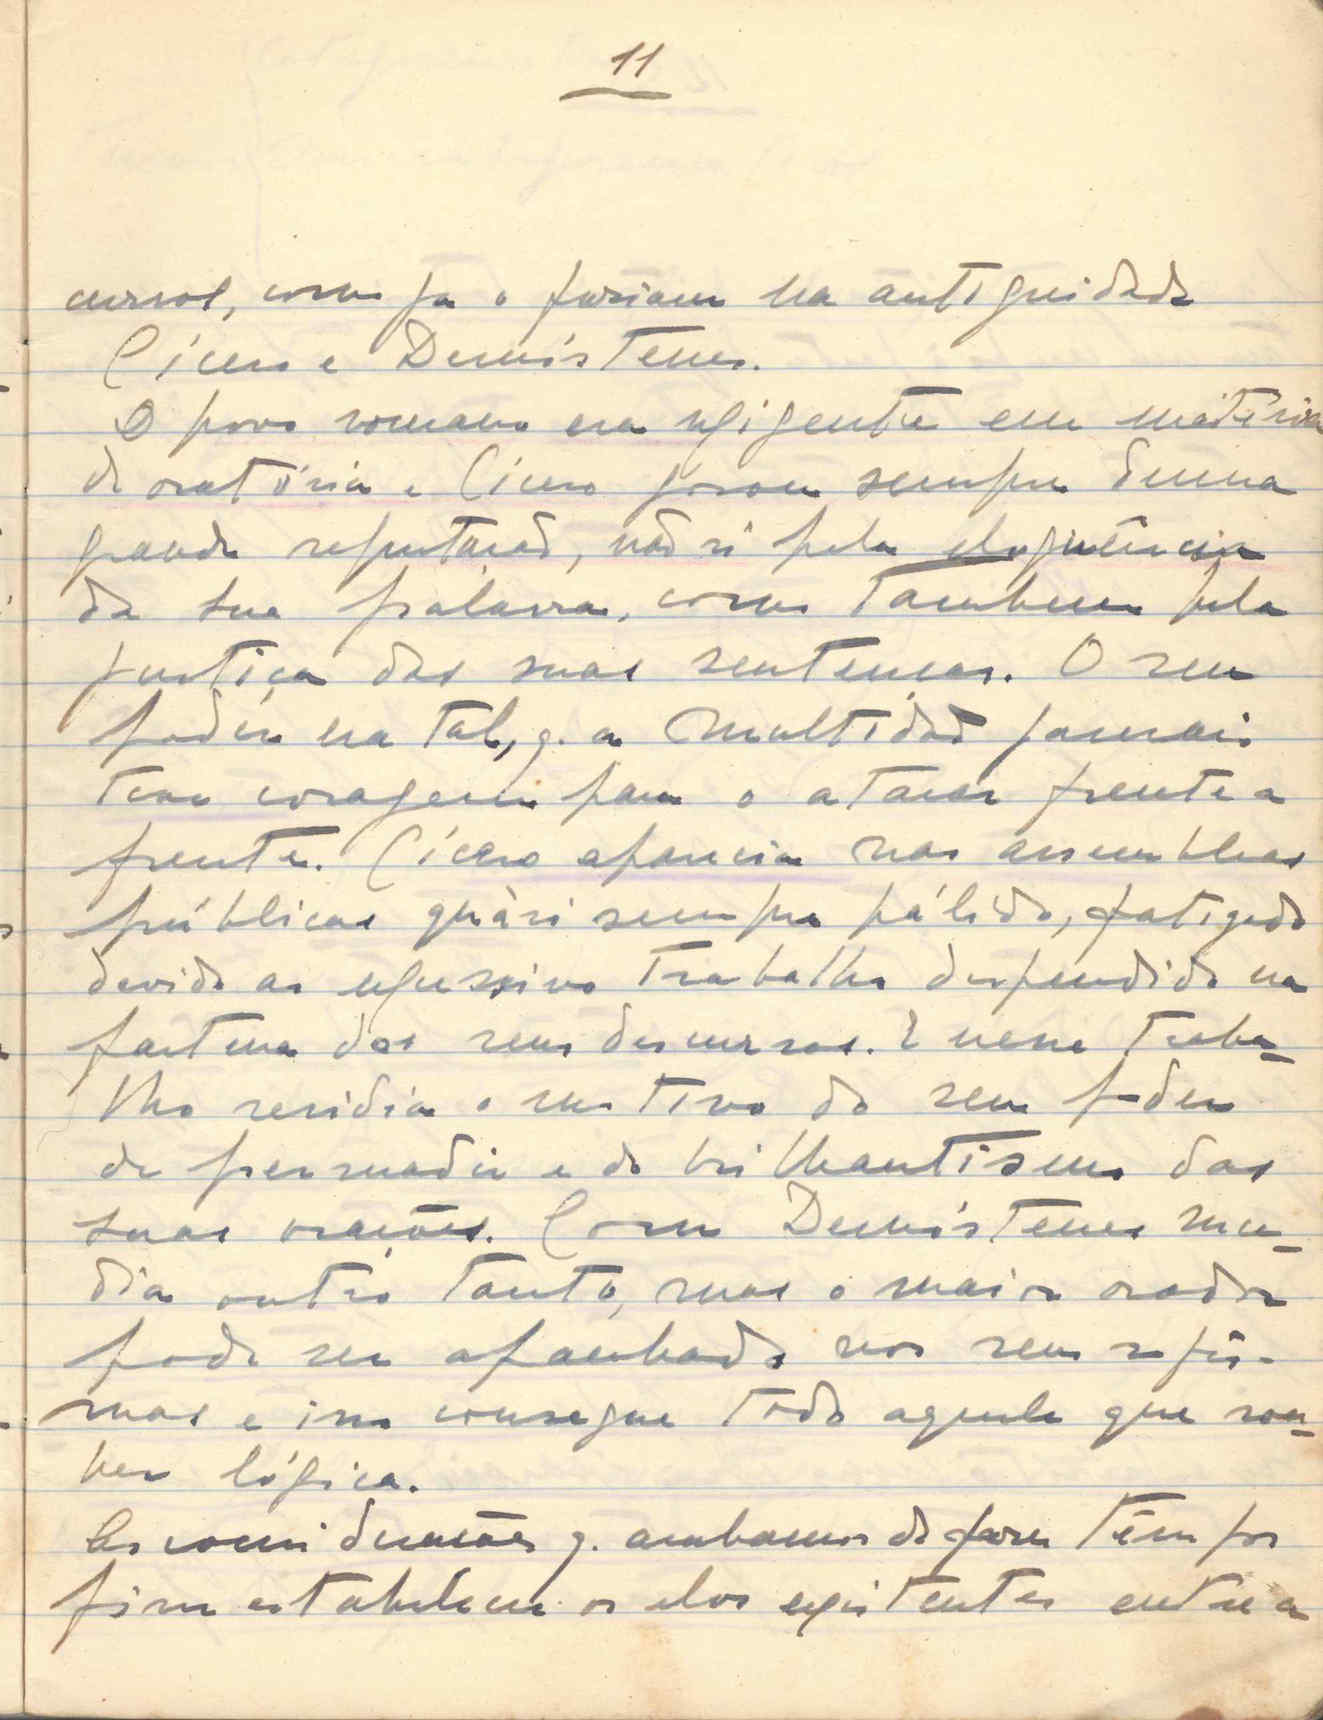 11
cursos, como ja o faziam na antiguidade
Cícero e Demóstenes.
O povo romano era exigente em matéria
de oratória e Cícero gosou sempre duma
grande reputação, não só pela eloquência
da sua palavra, como tambem pela
justiça das suas sentenças. O seu
poder era tal, q. a multidão jamais
teve coragem para o atacar frente a
frente. Cícero aparecia nas assembleas
públicas quàsi sempre pálido, fatigado
devido ao excessivo trabalho despendido na
factura dos seus discursos. E nesse traba-
lho residia o motivo do seu poder
de persuadir e do brilhantismo das
suas orações. Com Demóstenes suce-
dia outro tanto, mas o maior orador
pode ser apanhado nos seus sofis-
mas e isso consegue todo aquele que sou-
ber lógica.
As considerações q. acabamos de fazer têm por
fim estabelecer os elos existentes entre a